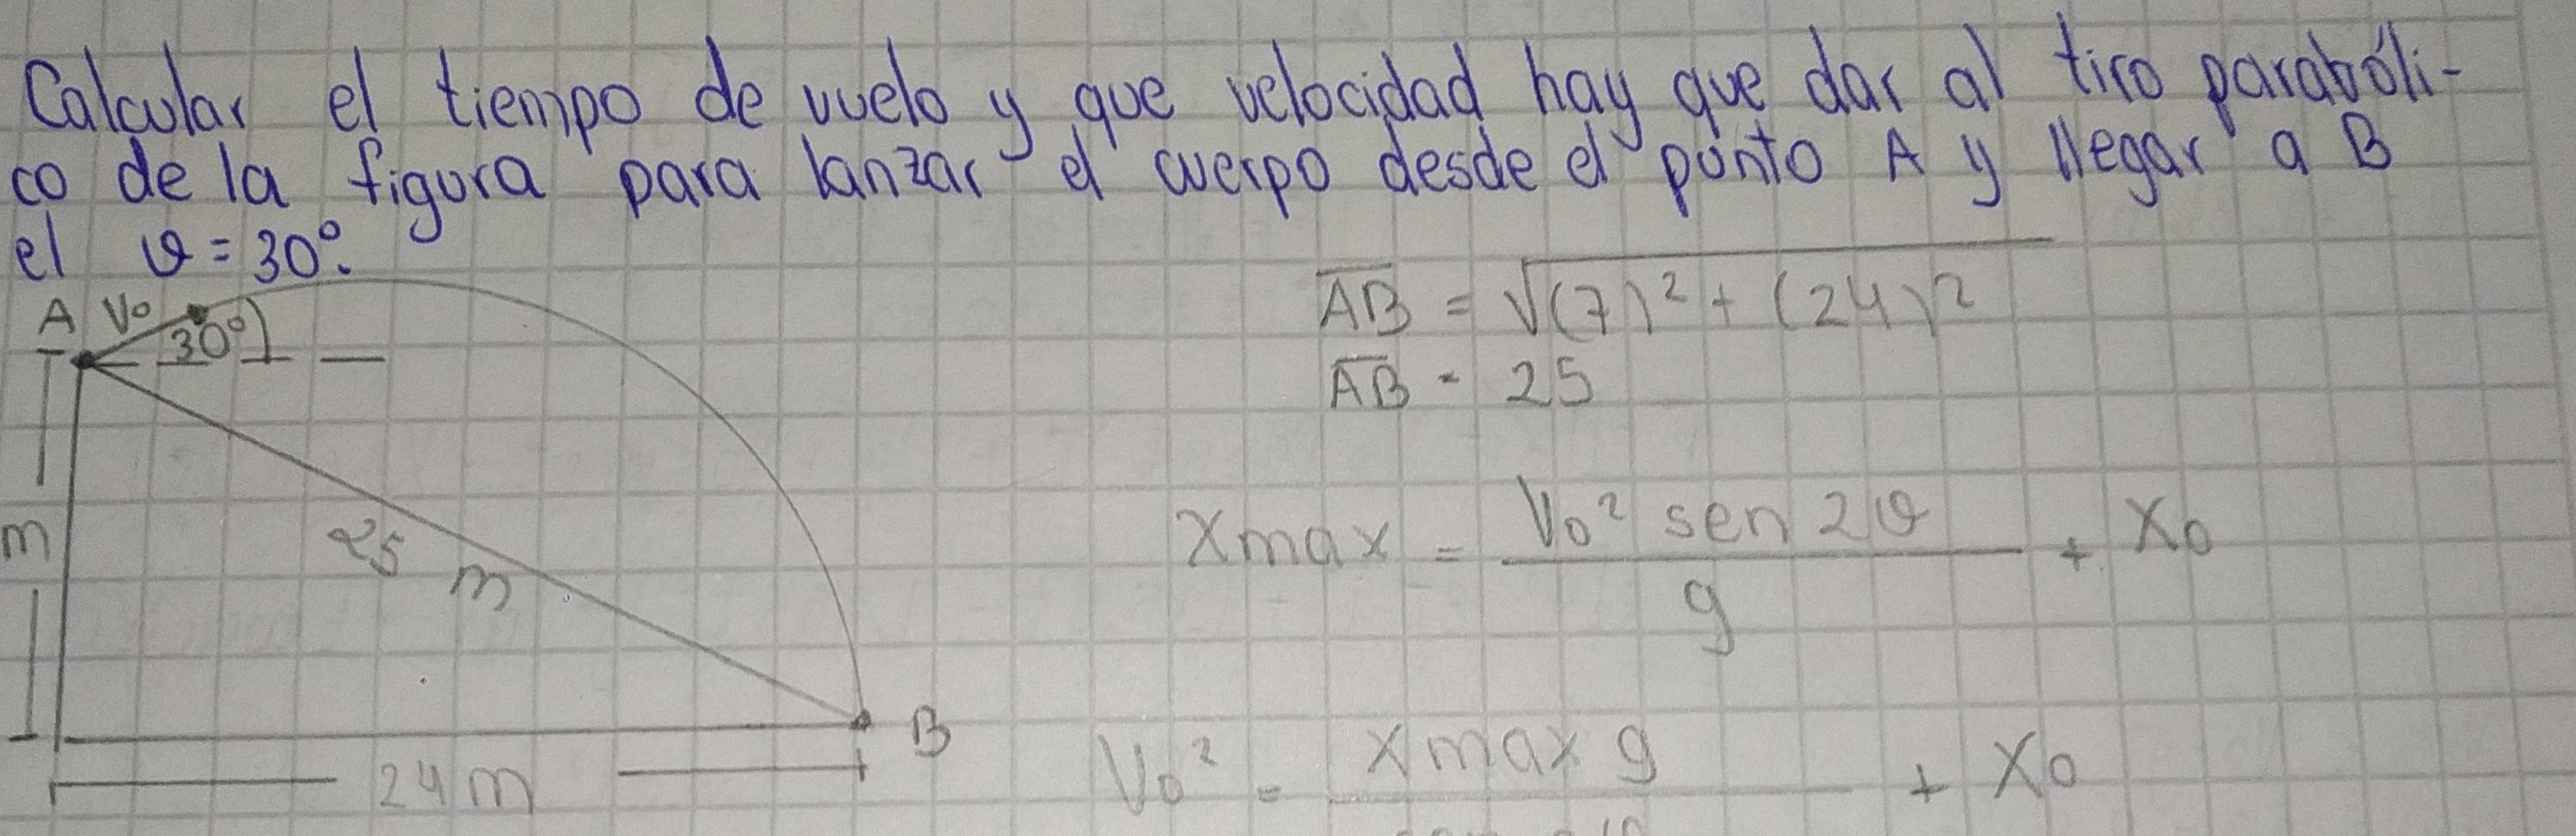 Calcular el tiempo de vuelo y que velocidad hay que dar al tiro parabóli-
co de la figura para lanzar el cuerpo desde el punto A y llegar a B
el ϑ = 30°.
A Vo
30°
m
25 m
B
24 m
AB = √(7)² + (24)²
AB = 25
Xmax = Vo² sen 2ϑ / g + Xo
Vo² = Xmax g + Xo